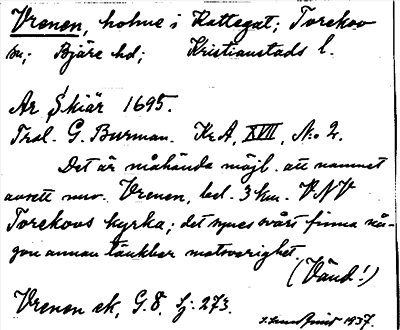 Vrenen, holme i Kattegat; Torekov
sn; Bjäre hd; Kristianstads l.
Ar Skiär 1695.
Tral. G. Burman. KrA, XVII, No 2.
Det är måhända möjl. att namnet
avsett nuv. Vrenen, bel. 3 km. VNV
Torekovs kyrka; det synes svårt finna nå-
gon annan tänkbar motsvarighet.
(Vänd!)
Vrenen ek, G.8. Sj: 273.
1937.